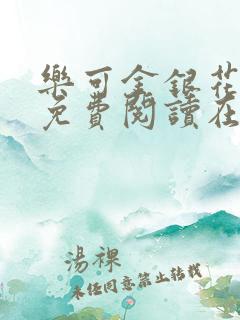 樂可金銀花
免費閱讀在
湯裸
未经同意禁止转载